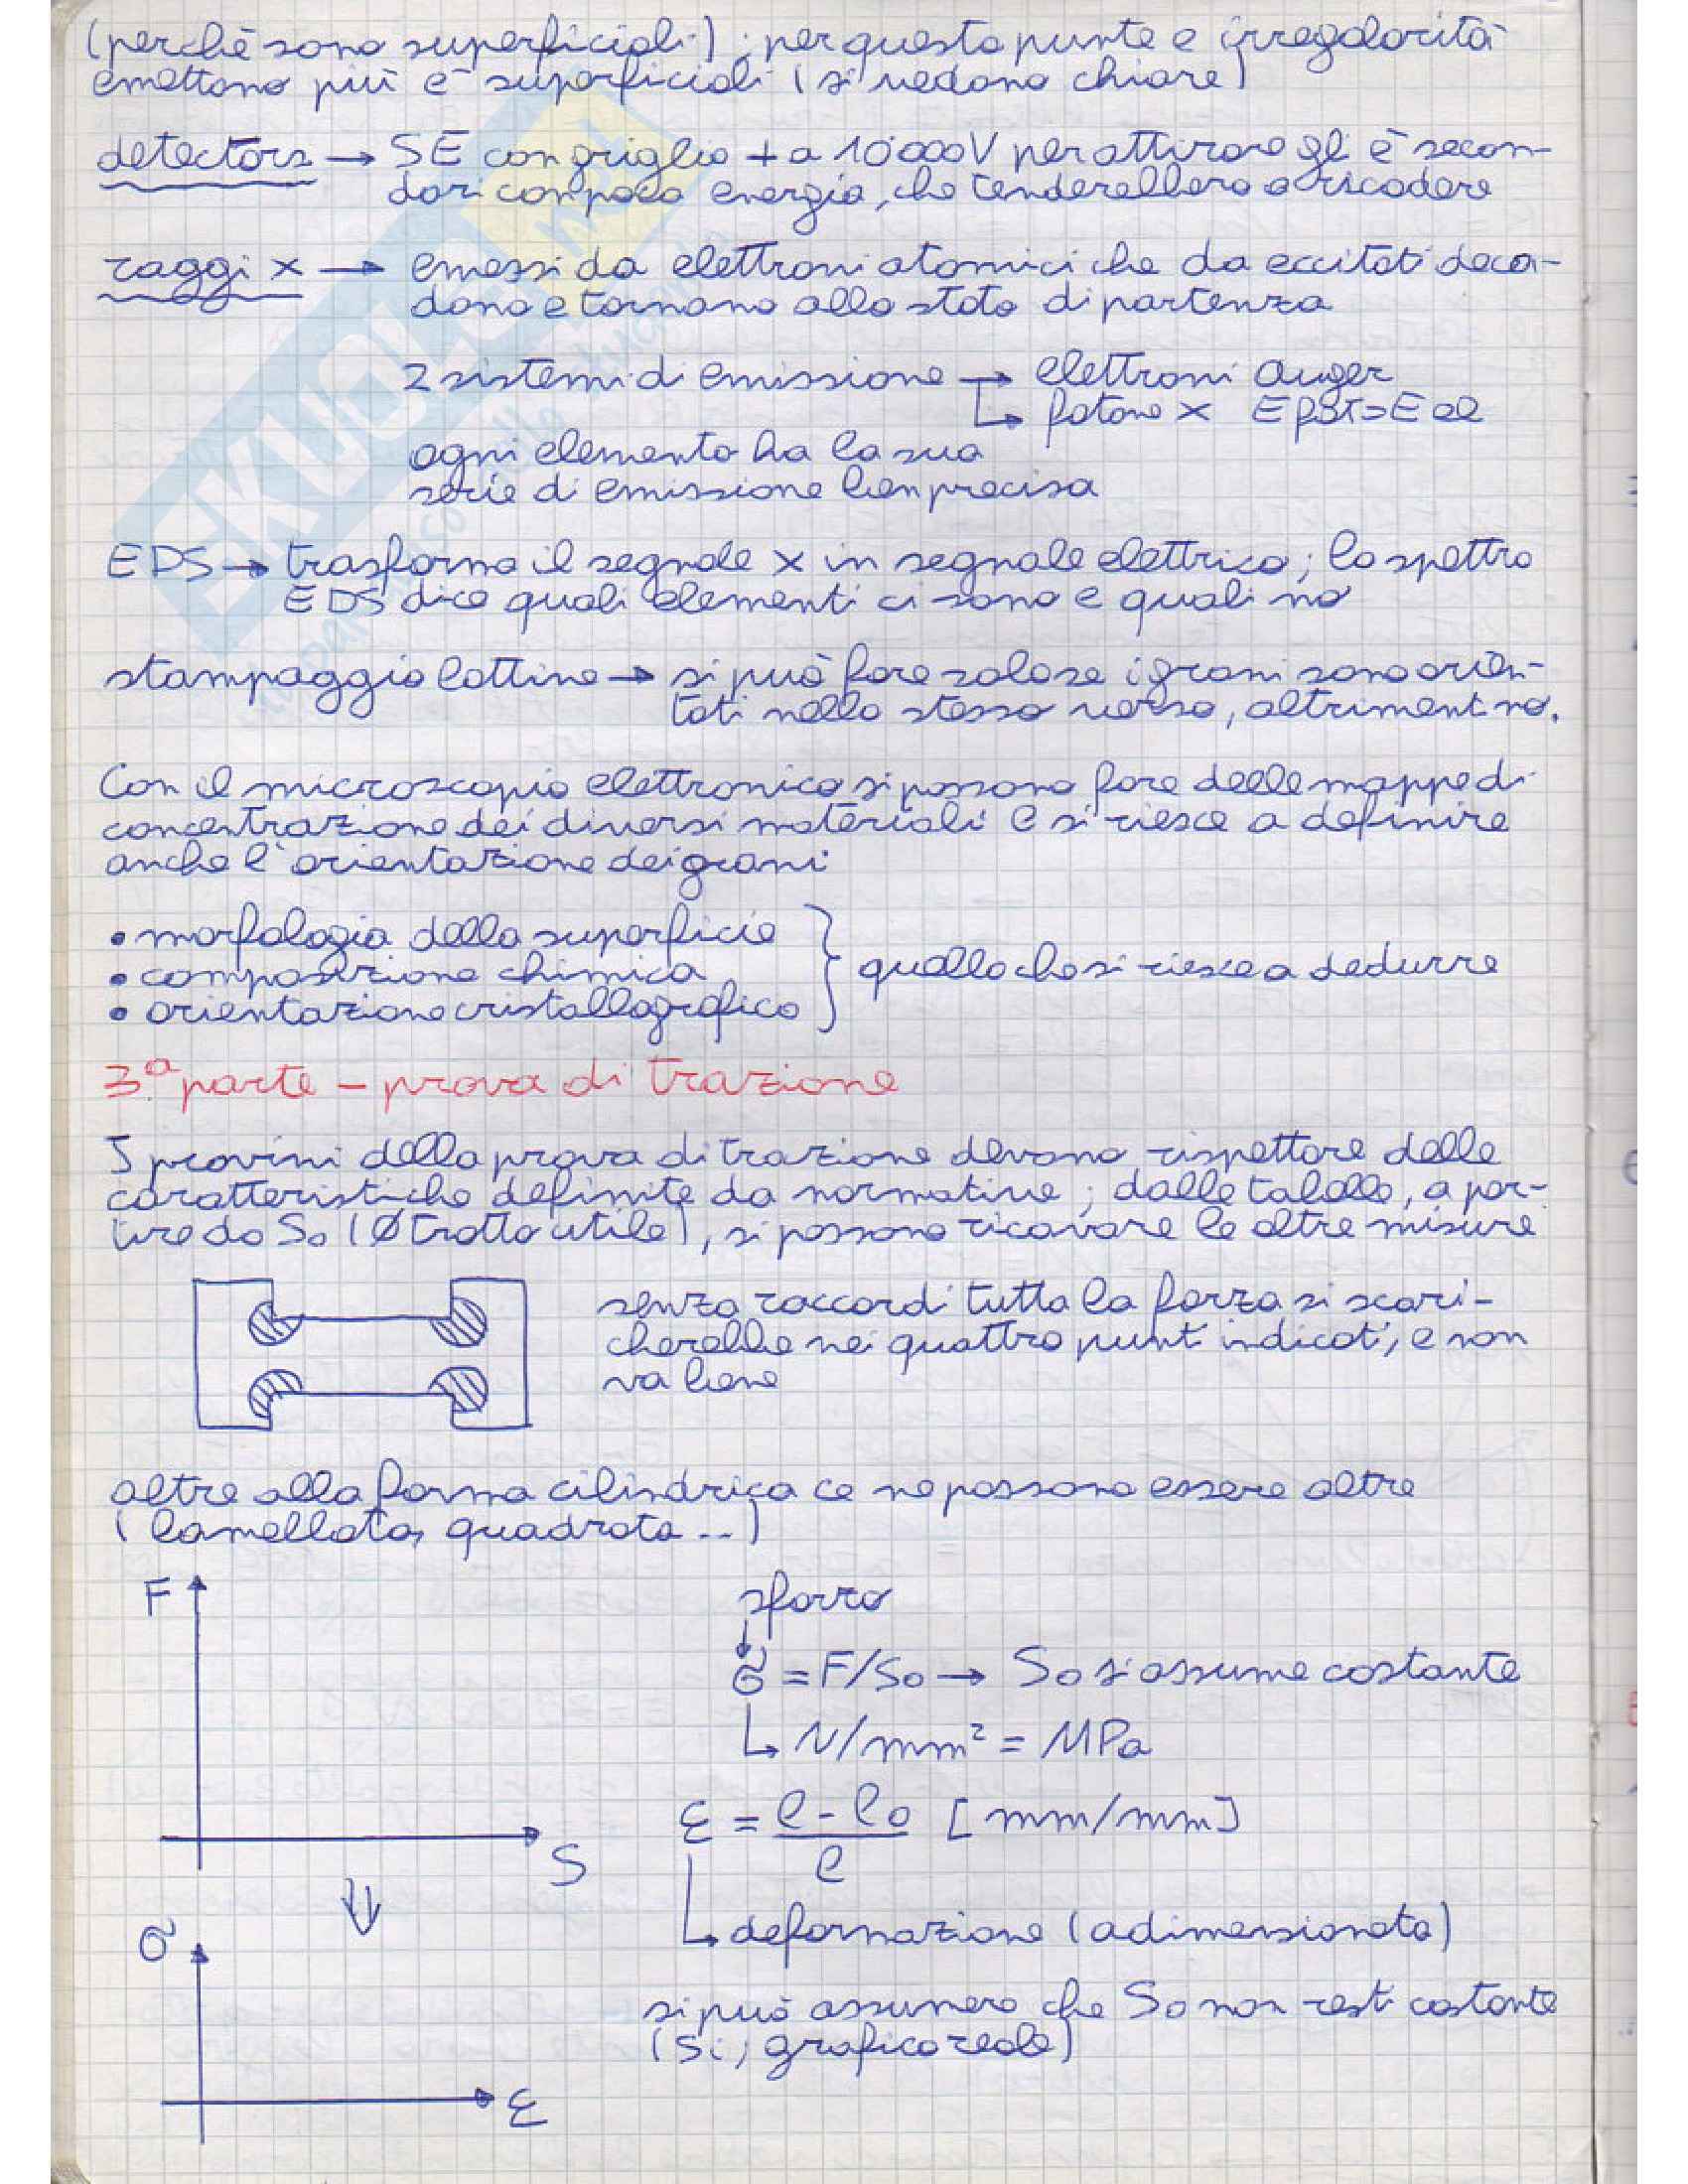 (perchè sono superficiali); per questo punte e irregolarità
emettono più e⁻ superficiali (si vedono chiare)
detectors → SE con griglia + a 10'000V per attirare gli e⁻ secon-
dari con poca energia, che tenderebbero a ricadere
raggi x → emessi da elettroni atomici che da eccitati deca-
dono e tornano allo stato di partenza
2 sistemi di emissione → elettroni Auger
↳ fotone x
ogni elemento ha la sua
serie di emissione ben precisa
EDS → trasforma il segnale x in segnale elettrico; lo spettro
EDS dice quali elementi ci sono e quali no
stampaggio lattine → si può fare solo se i grani sono orien-
tati nello stesso verso, altrimenti no.
Con il microscopio elettronico si possono fare delle mappe di
concentrazione dei diversi materiali e si riesce a definire
anche l'orientazione dei grani
• morfologia della superficie
• composizione chimica
• orientazione cristallografica
quello che si riesce a dedurre
3ª parte - prova di trazione
I provini della prova di trazione devono rispettare delle
caratteristiche definite da normative; dalle tabelle, a par-
tire da S₀ (Ø tratto utile), si possono ricavare le altre misure
senza raccordi tutta la forza si scari-
cherebbe nei quattro punti indicati, e non
va bene
oltre alla forma cilindrica ce ne possono essere altre
(lamellata, quadrata...)
F
S
⇓
σ
ε
sforzo
↓
σ = F/S₀ → S₀ si assume costante
↳ N/mm² = MPa
ε = l - l₀ [mm/mm]
l
↳ deformazione (adimensionata)
si può assumere che S₀ non resti costante
(Si; grafico reale)
SKUOLA.net